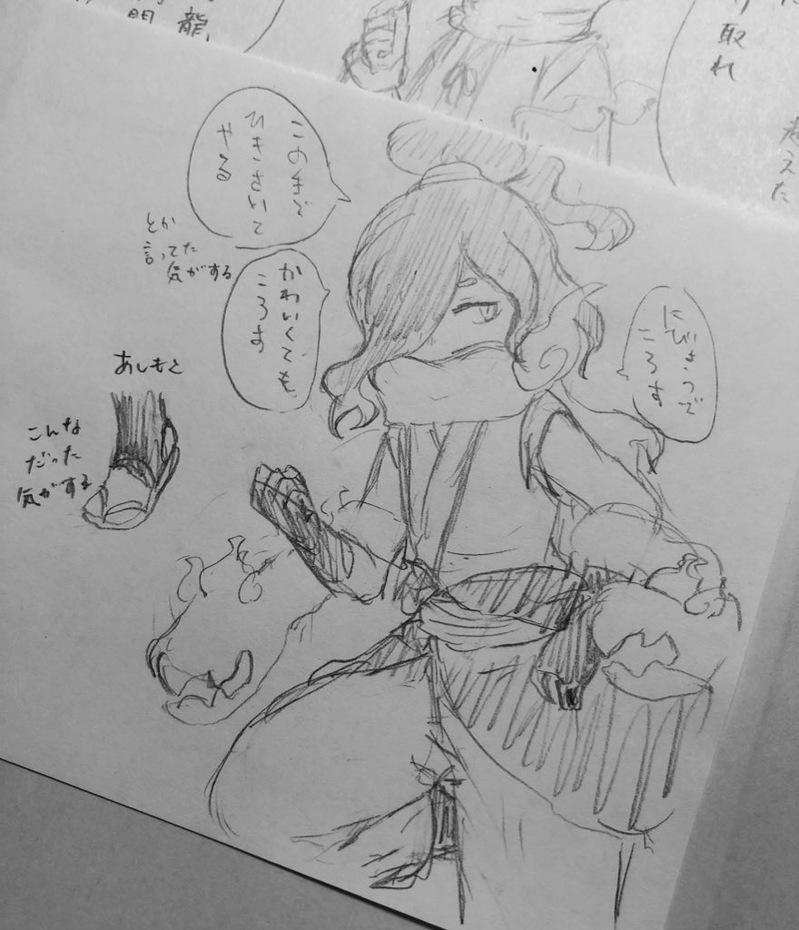 取れ
考えた
龍
この手で
ひきさいて
やる
とか
言ってた
気がする
かわいくても
ころす
ころす
あしもと
こんな
だった
気がする